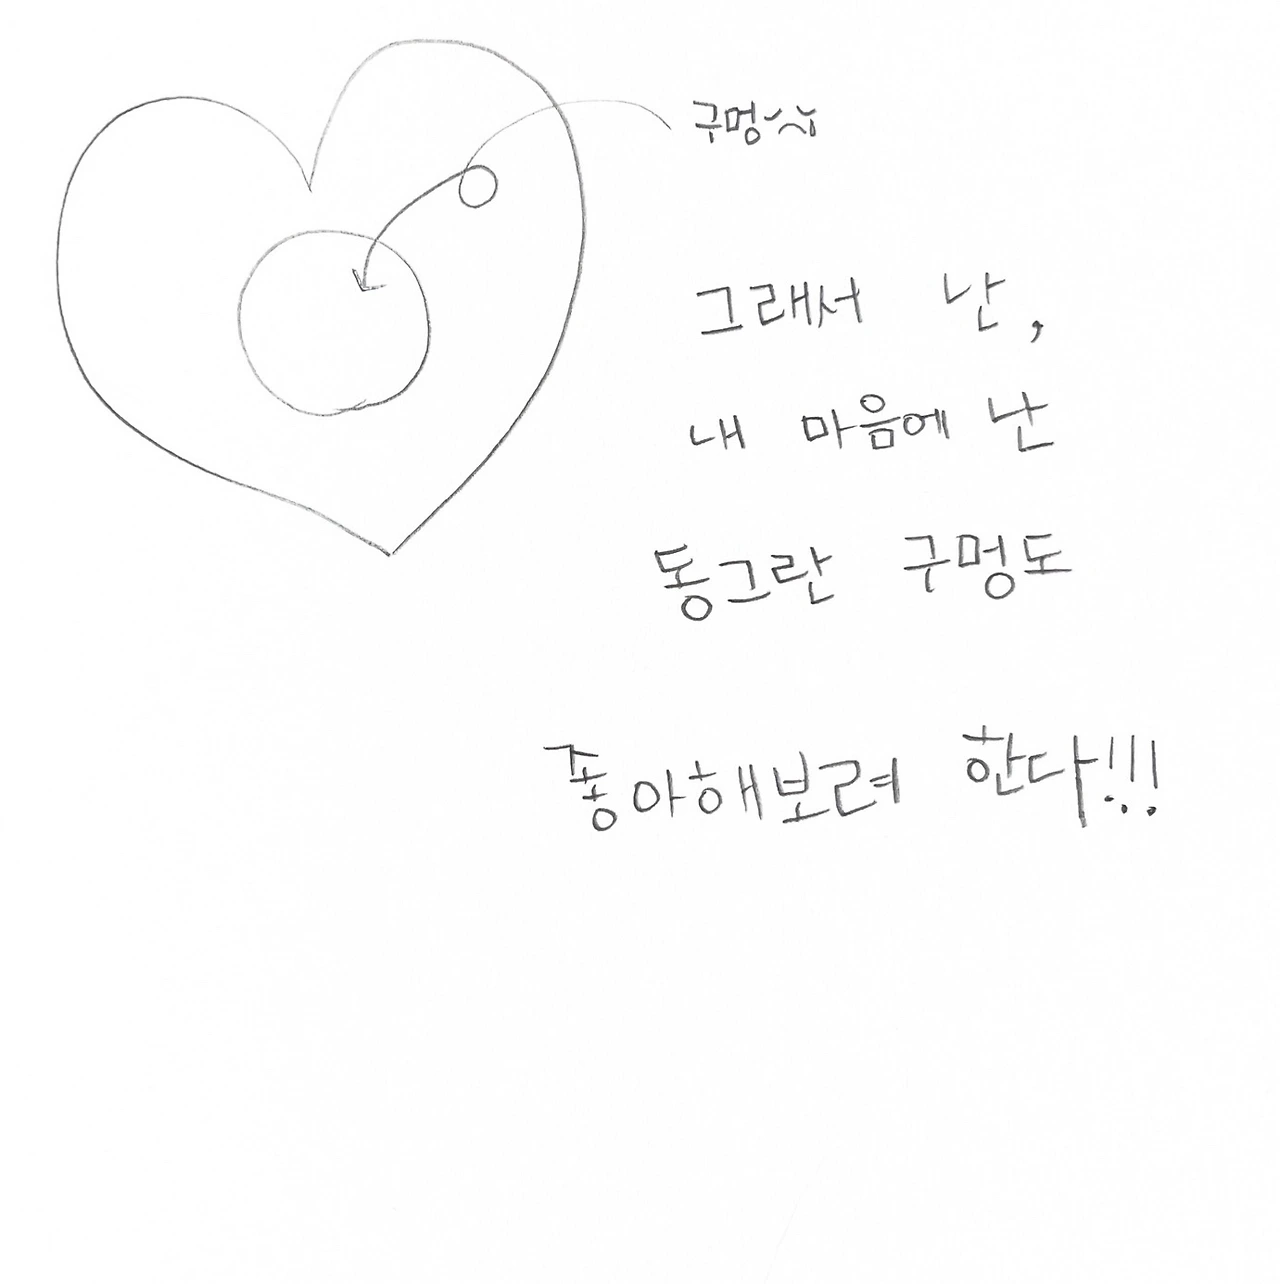 구멍
그래서 난,
내 마음에 난
동그란 구멍도
좋아해보려 한다!!!